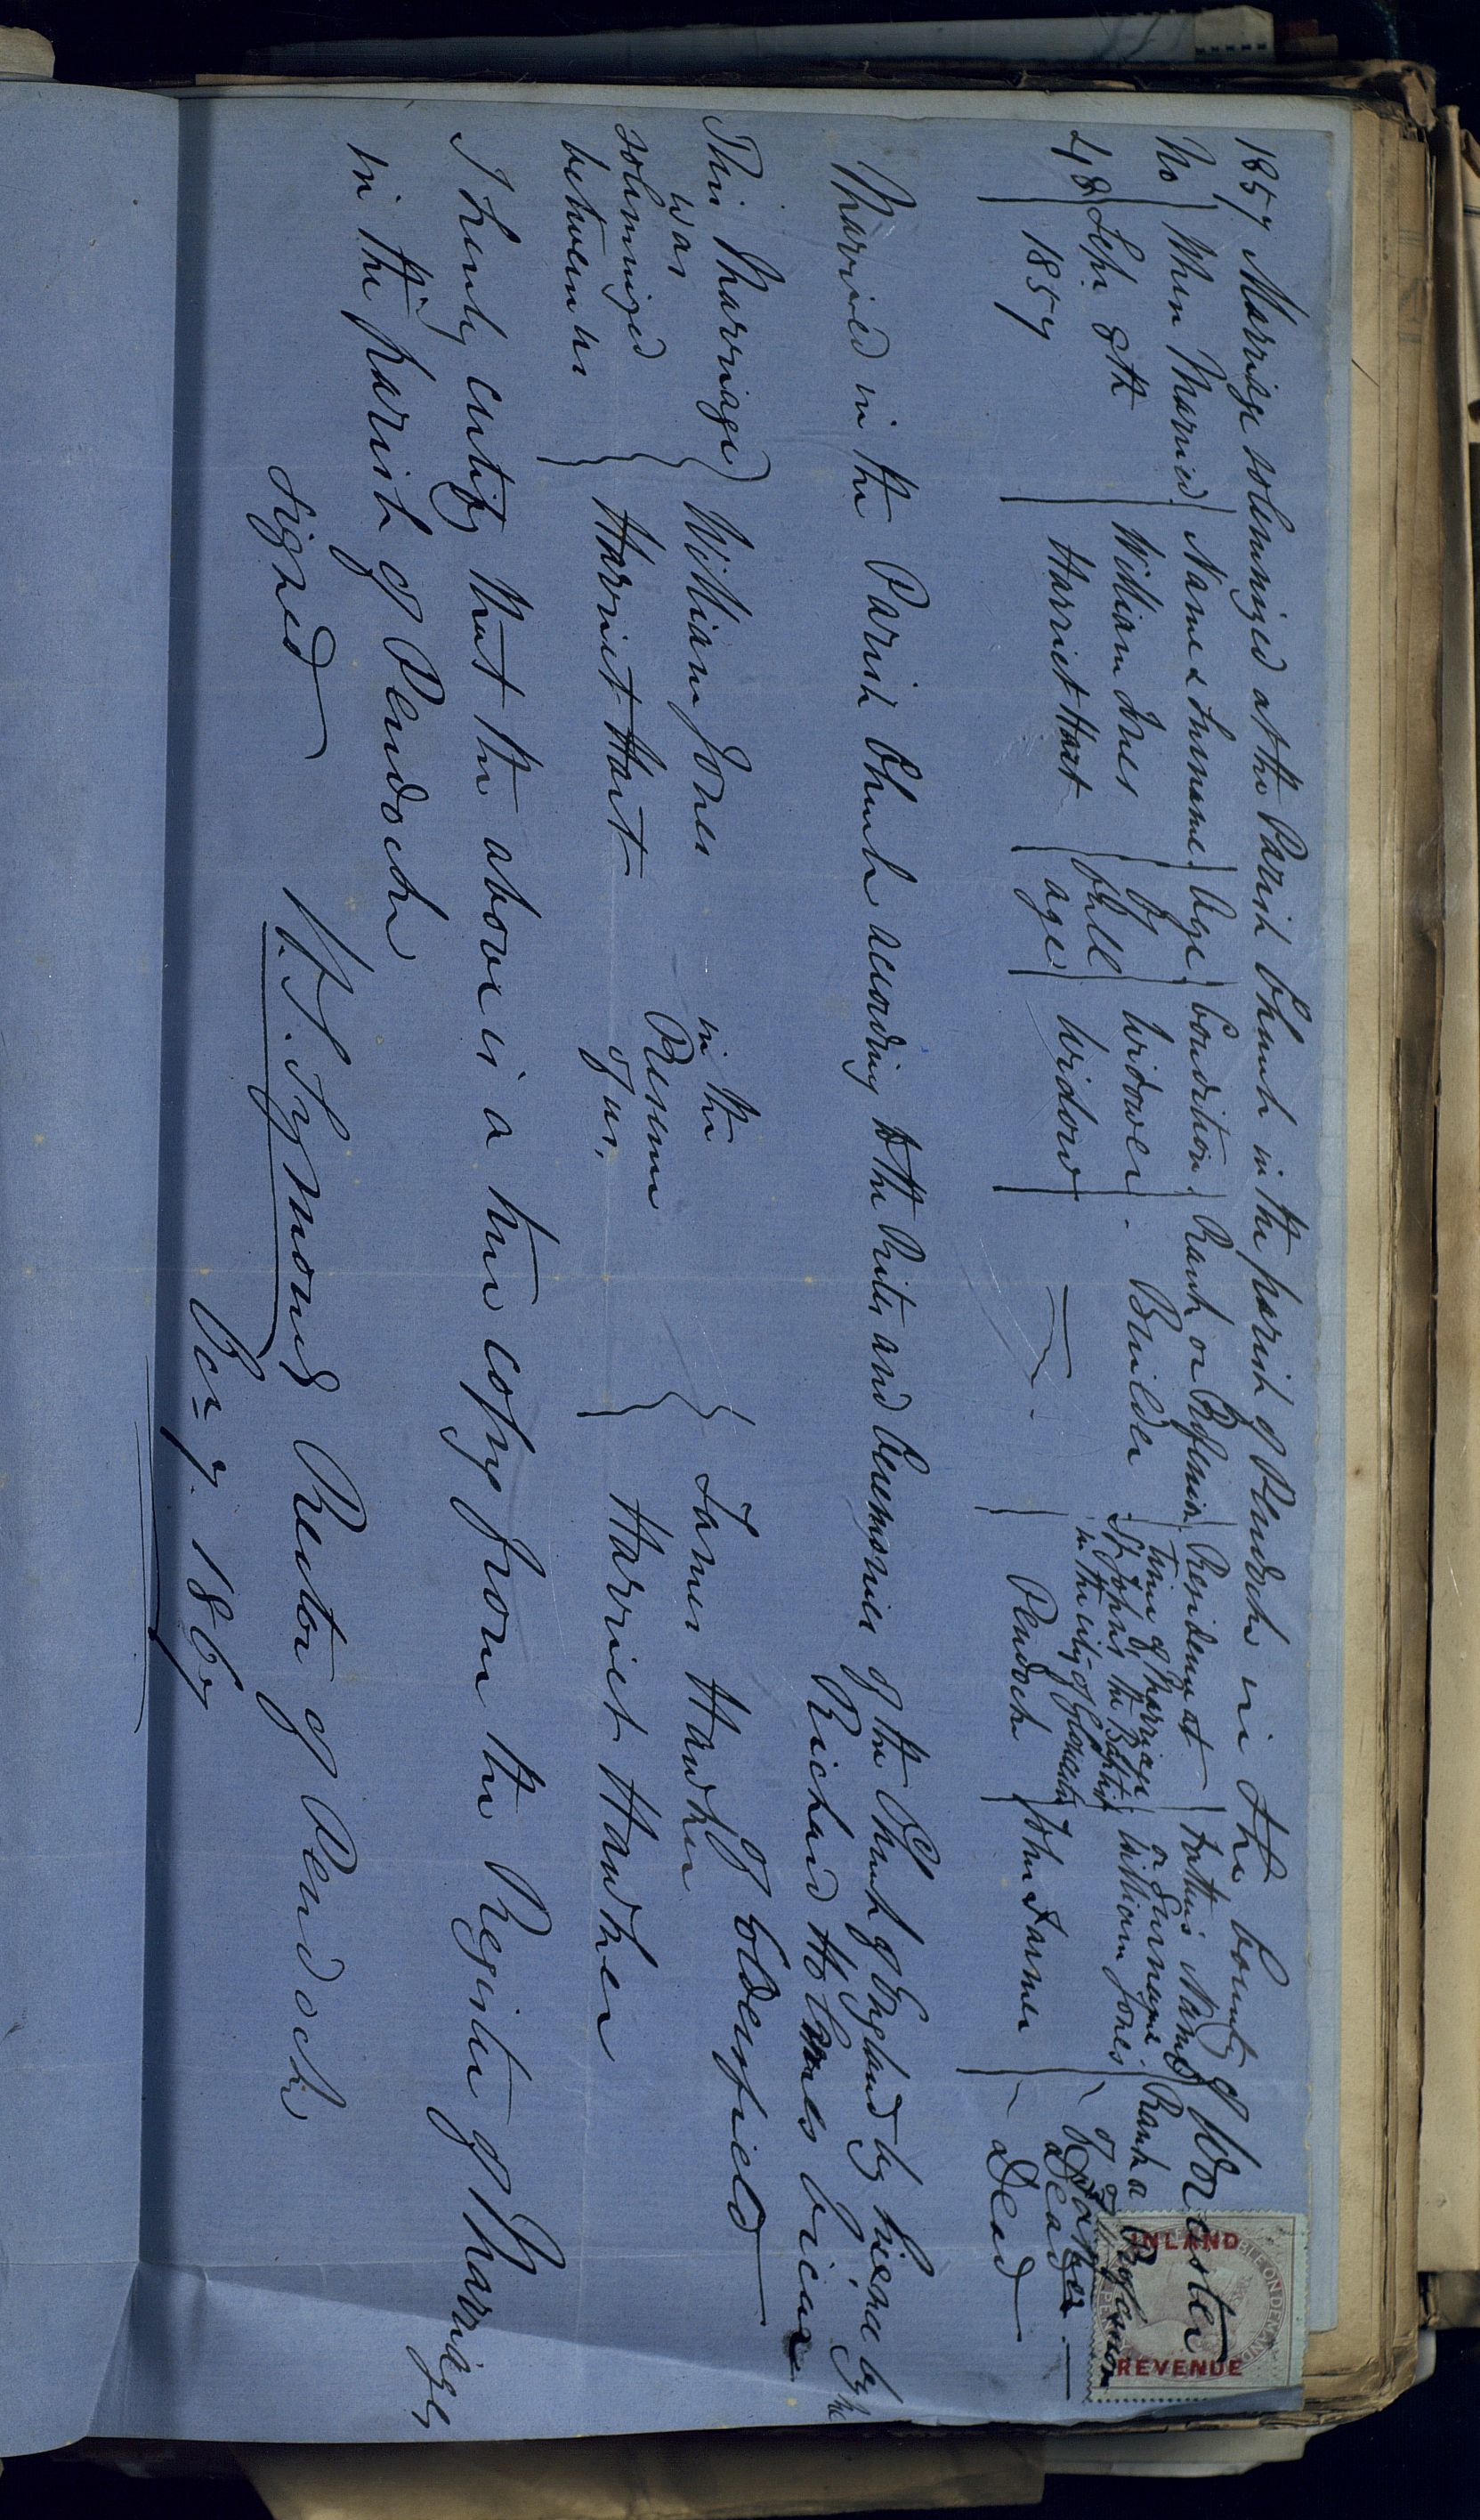 1857 Marriage solemnized at the Parish Church in the parish of Pendock in the County of Worcester
No When Married Name & Surname Age Condition Rank or Profession Residence at time of Marriage Fathers Name & Surname Rank or Profession of Father
48 Sept. 8th 1857 William Jones of full age Widower Builder St John's the Baptist in the city of Gloucester William Jones Dead
Harriet Hart Widow Pendock John Farmer Dead
Married in the Parish Church according to the Rites and Ceremonies of the Church of England by license by me
Richard Holmes Vicar
of Eldersfield
This Marriage was solemnized between us
William Jones
Harriet Hart
in the Presence of us,
James Hawker
Harriet Hawker
I hereby certify that the above is a true copy from the Register of Marriages
in the parish of Pendock
Signed W. S. Symonds Rector of Pendock
7. 1867
INLAND REVENUE